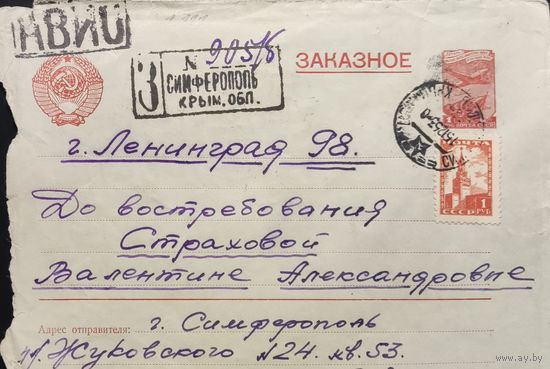 АВИО
№ 905/б
ЗАКАЗНОЕ
З
СИМФЕРОПОЛЬ
КРЫМ. ОБЛ.
г. Ленинград 98.
ПОЧТА СССР
До востребования
1
СССР РУБ
Страховой
Валентине Александровне
Адрес отправителя: г. Симферополь
ул. Жуковского №24. кв. 53.
www.ay.by